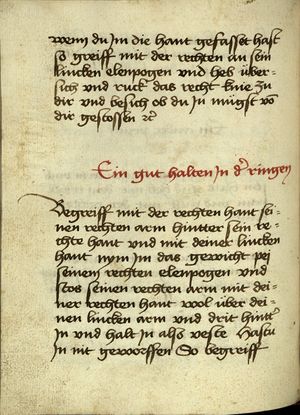 wenn du Im die hant gefasset hast
so greiff mit der rechten an sein
lincken elenpogen vnd heb über
sich vnd ruck das recht knie zu
dir vnd besich ob du In mügst võ
dir gestossen ꝛc
Ein gut halten In d' ringen
Begreiff mit der rechten hant sei
nen rechten arm hintter sein re
chte hant vnd mit deiner lincken
hant nym im das gewicht pej
seinen rechten elenpogen vnd
stos seinen rechten arm mit dei
ner rechten hant wol über dei
nen lincken arm vnd drit hintt'
In vnd halt in als veste Hastu
In nit geworffen So begreiff